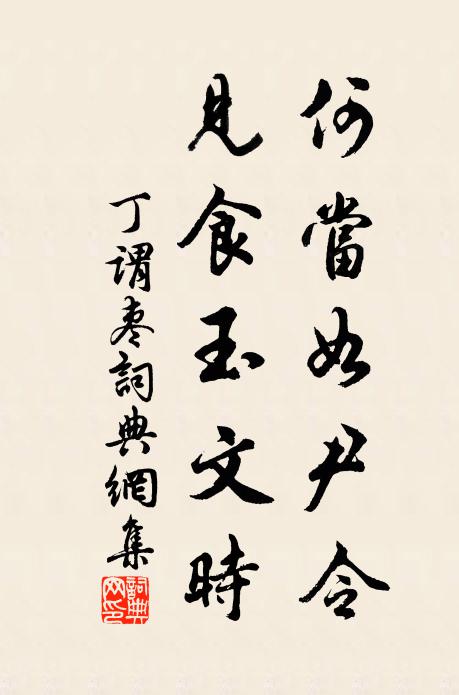 何當如尹令
見食玉文時
丁謂棗詞典網集
詞典網印